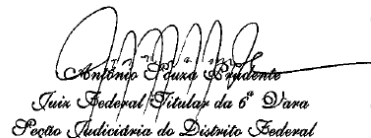 Antônio Souza Prudente
Juiz Federal Titular da 6ª Vara
Seção Judiciária do Distrito Federal